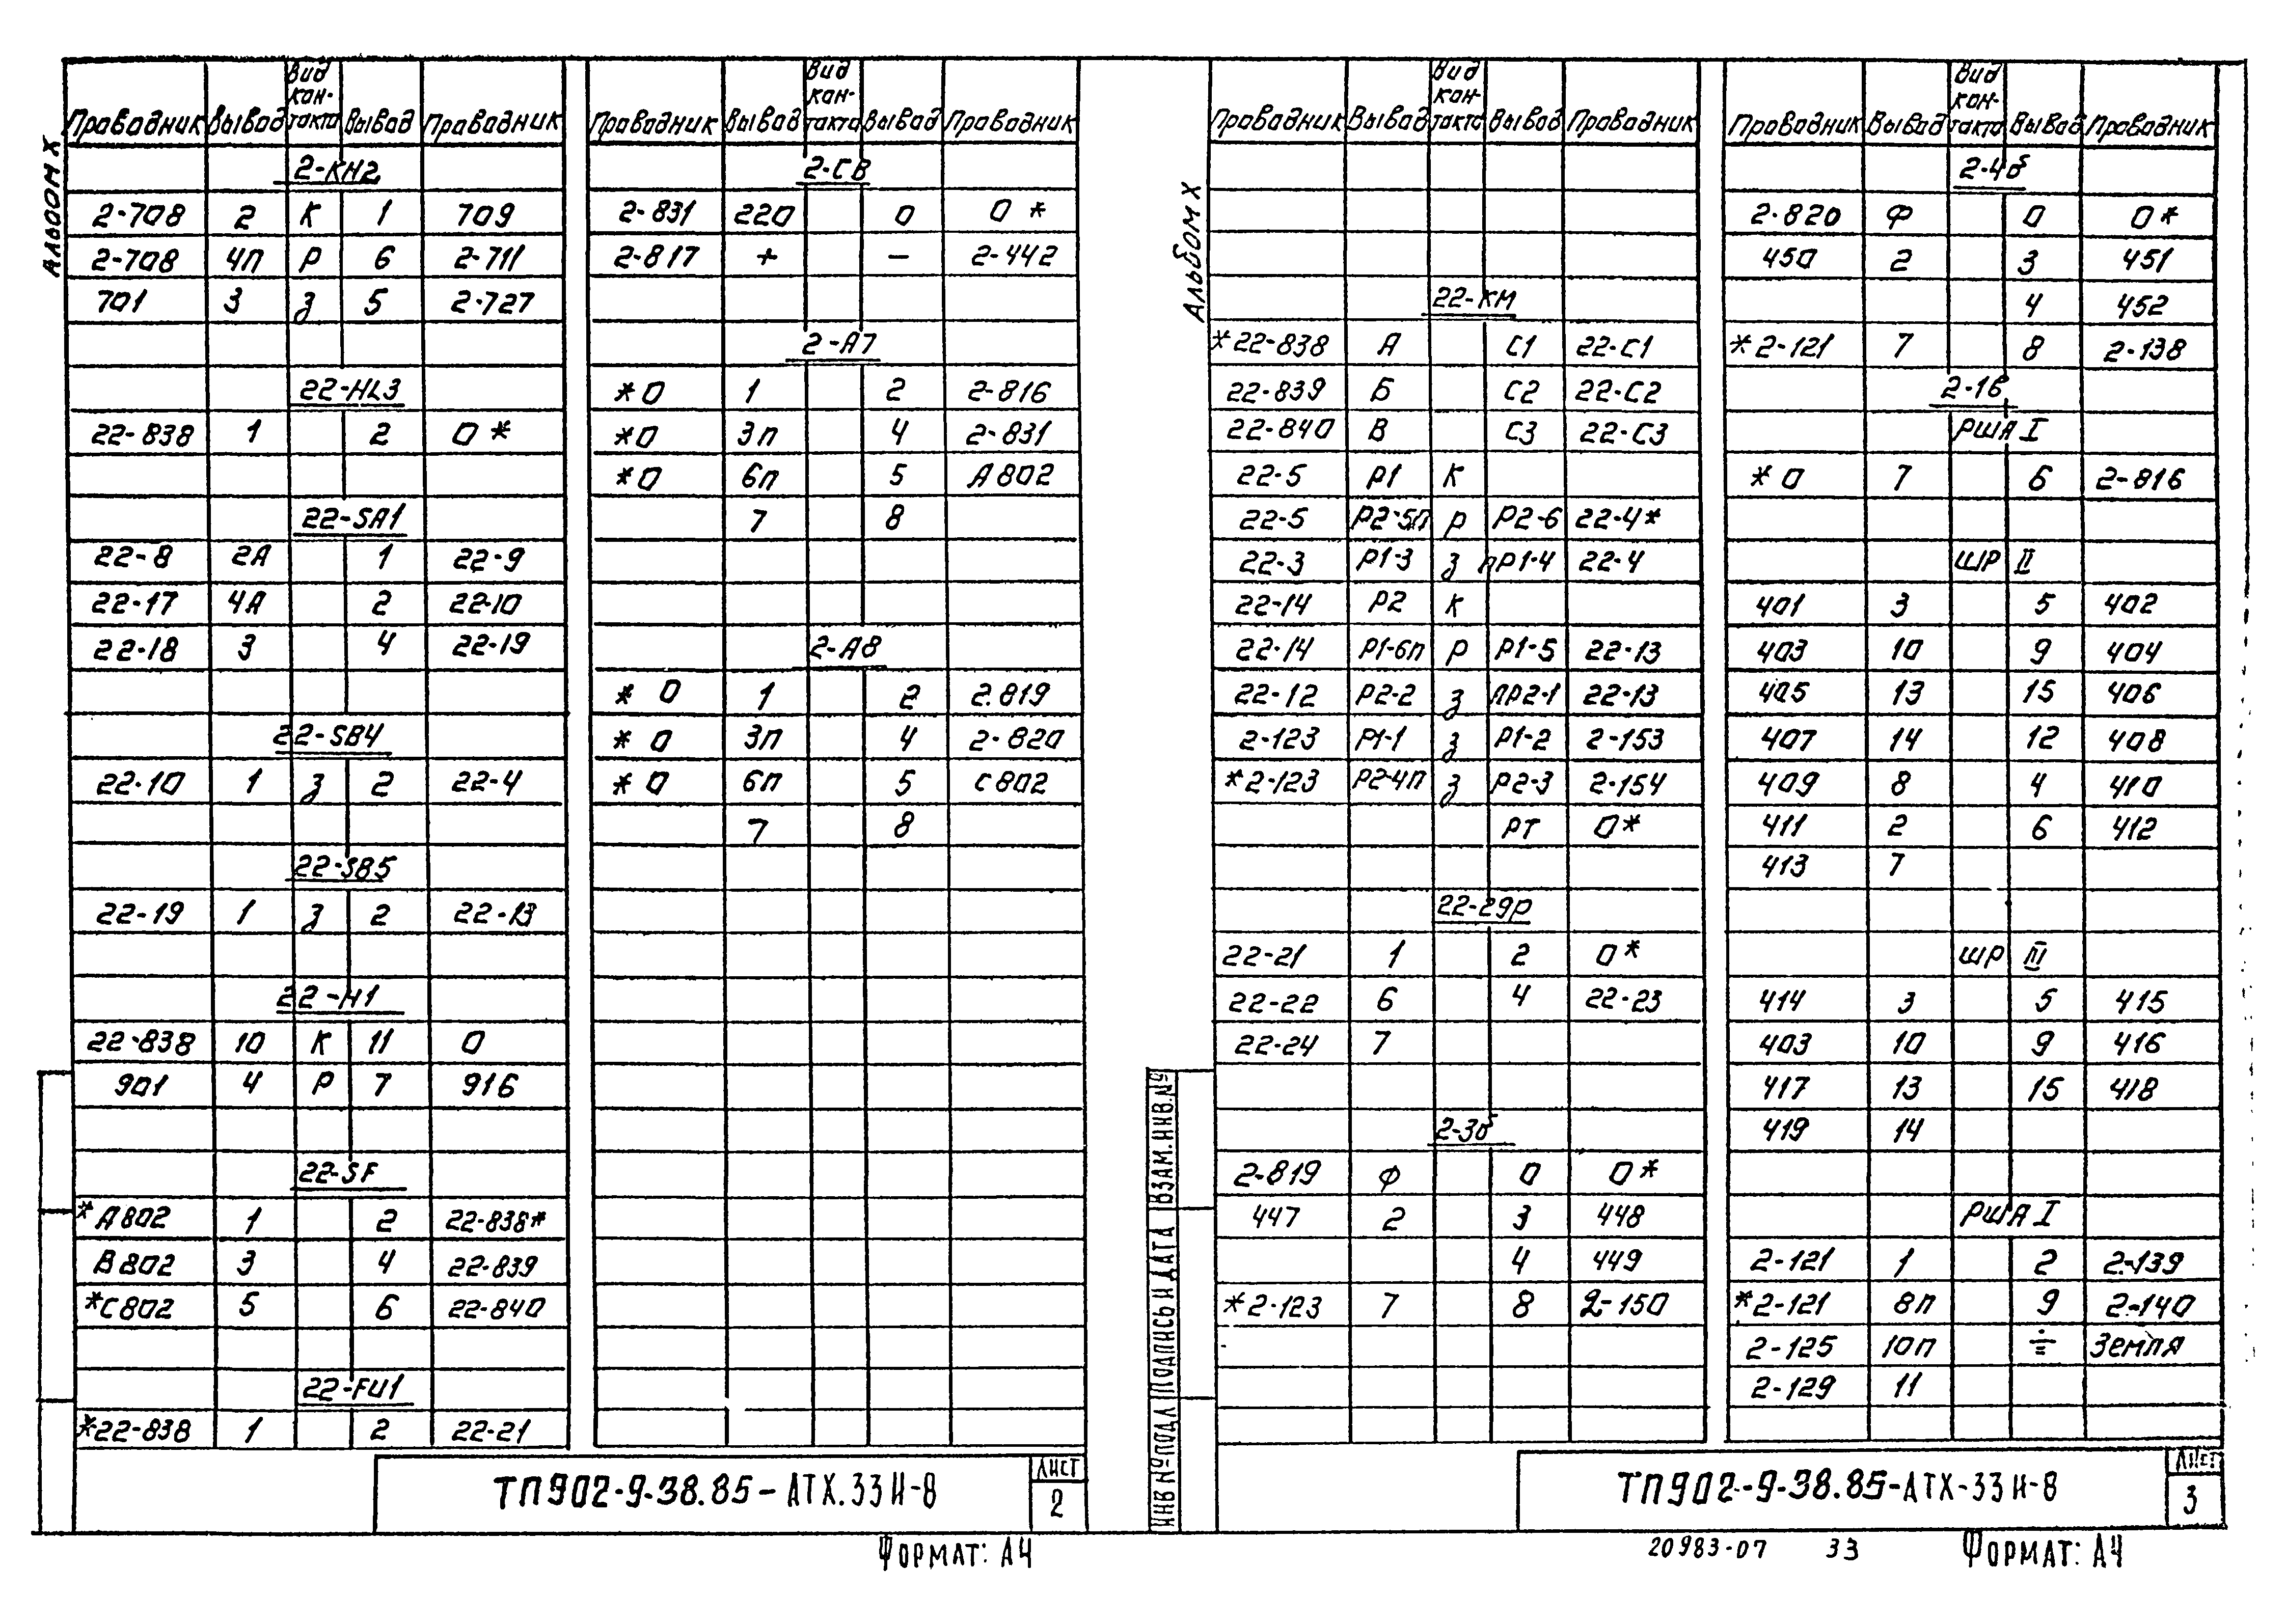 Альбом X
Проводник Вывод Вид кон-такта Вывод Проводник
2-КН2
2-708 2 К 1 709
2-708 4П Р 6 2-711
701 3 З 5 2-727
22-HL3
22-838 1 2 0 *
22-SA1
22-8 2А 1 22-9
22-17 4А 2 22-10
22-18 3 4 22-19
22-SB4
22-10 1 З 2 22-4
22-SB5
22-19 1 З 2 22-13
22-Н1
22-838 10 К 11 0
901 4 Р 7 916
22-SF
*А802 1 2 22-838*
В802 3 4 22-839
*С802 5 6 22-840
22-FU1
*22-838 1 2 22-21
Проводник Вывод Вид кон-такта Вывод Проводник
2-СВ
2-831 220 0 0 *
2-817 + — 2-442
2-А7
*0 1 2 2-816
*0 3п 4 2-831
*0 6п 5 А802
7 8
2-А8
* 0 1 2 2.819
* 0 3п 4 2-820
* 0 6п 5 С802
7 8
ТП902-9-38.85-АТХ.33Н-8
Лист
2
Формат: А4
Альбом X
Проводник Вывод Вид кон-такта Вывод Проводник
22-КМ
*22-838 А С1 22-С1
22-839 Б С2 22-С2
22-840 В С3 22-С3
22-5 Р1 К
22-5 Р2-5П Р Р2-6 22-4*
22-3 Р1-3 З ПР1-4 22-4
22-14 Р2 К
22-14 Р1-6п Р Р1-5 22-13
22-12 Р2-2 З ПР2-1 22-13
2-123 Р1-1 З Р1-2 2-153
*2-123 Р2-4п З Р2-3 2-154
РТ 0*
22-29Р
22-21 1 2 0*
22-22 6 4 22-23
22-24 7
2-3б
2-819 Ф 0 0 *
447 2 3 448
4 449
*2-123 7 8 2-150
Проводник Вывод Вид кон-такта Вывод Проводник
2-4б
2-820 Ф 0 0*
450 2 3 451
4 452
*2-121 7 8 2-138
2-1в
РША I
* 0 7 6 2-816
ШР II
401 3 5 402
403 10 9 404
405 13 15 406
407 14 12 408
409 8 4 410
411 2 6 412
413 7
ШР III
414 3 5 415
403 10 9 416
417 13 15 418
419 14
РША I
2-121 1 2 2-139
*2-121 8п 9 2-140
2-125 10п Земля
2-129 11
ИНВ № ПОДЛ ПОДПИСЬ И ДАТА ВЗАМ. ИНВ. №
ТП902-9-38.85-АТХ-33Н-8
Лист
3
20983-07 33 Формат: А4